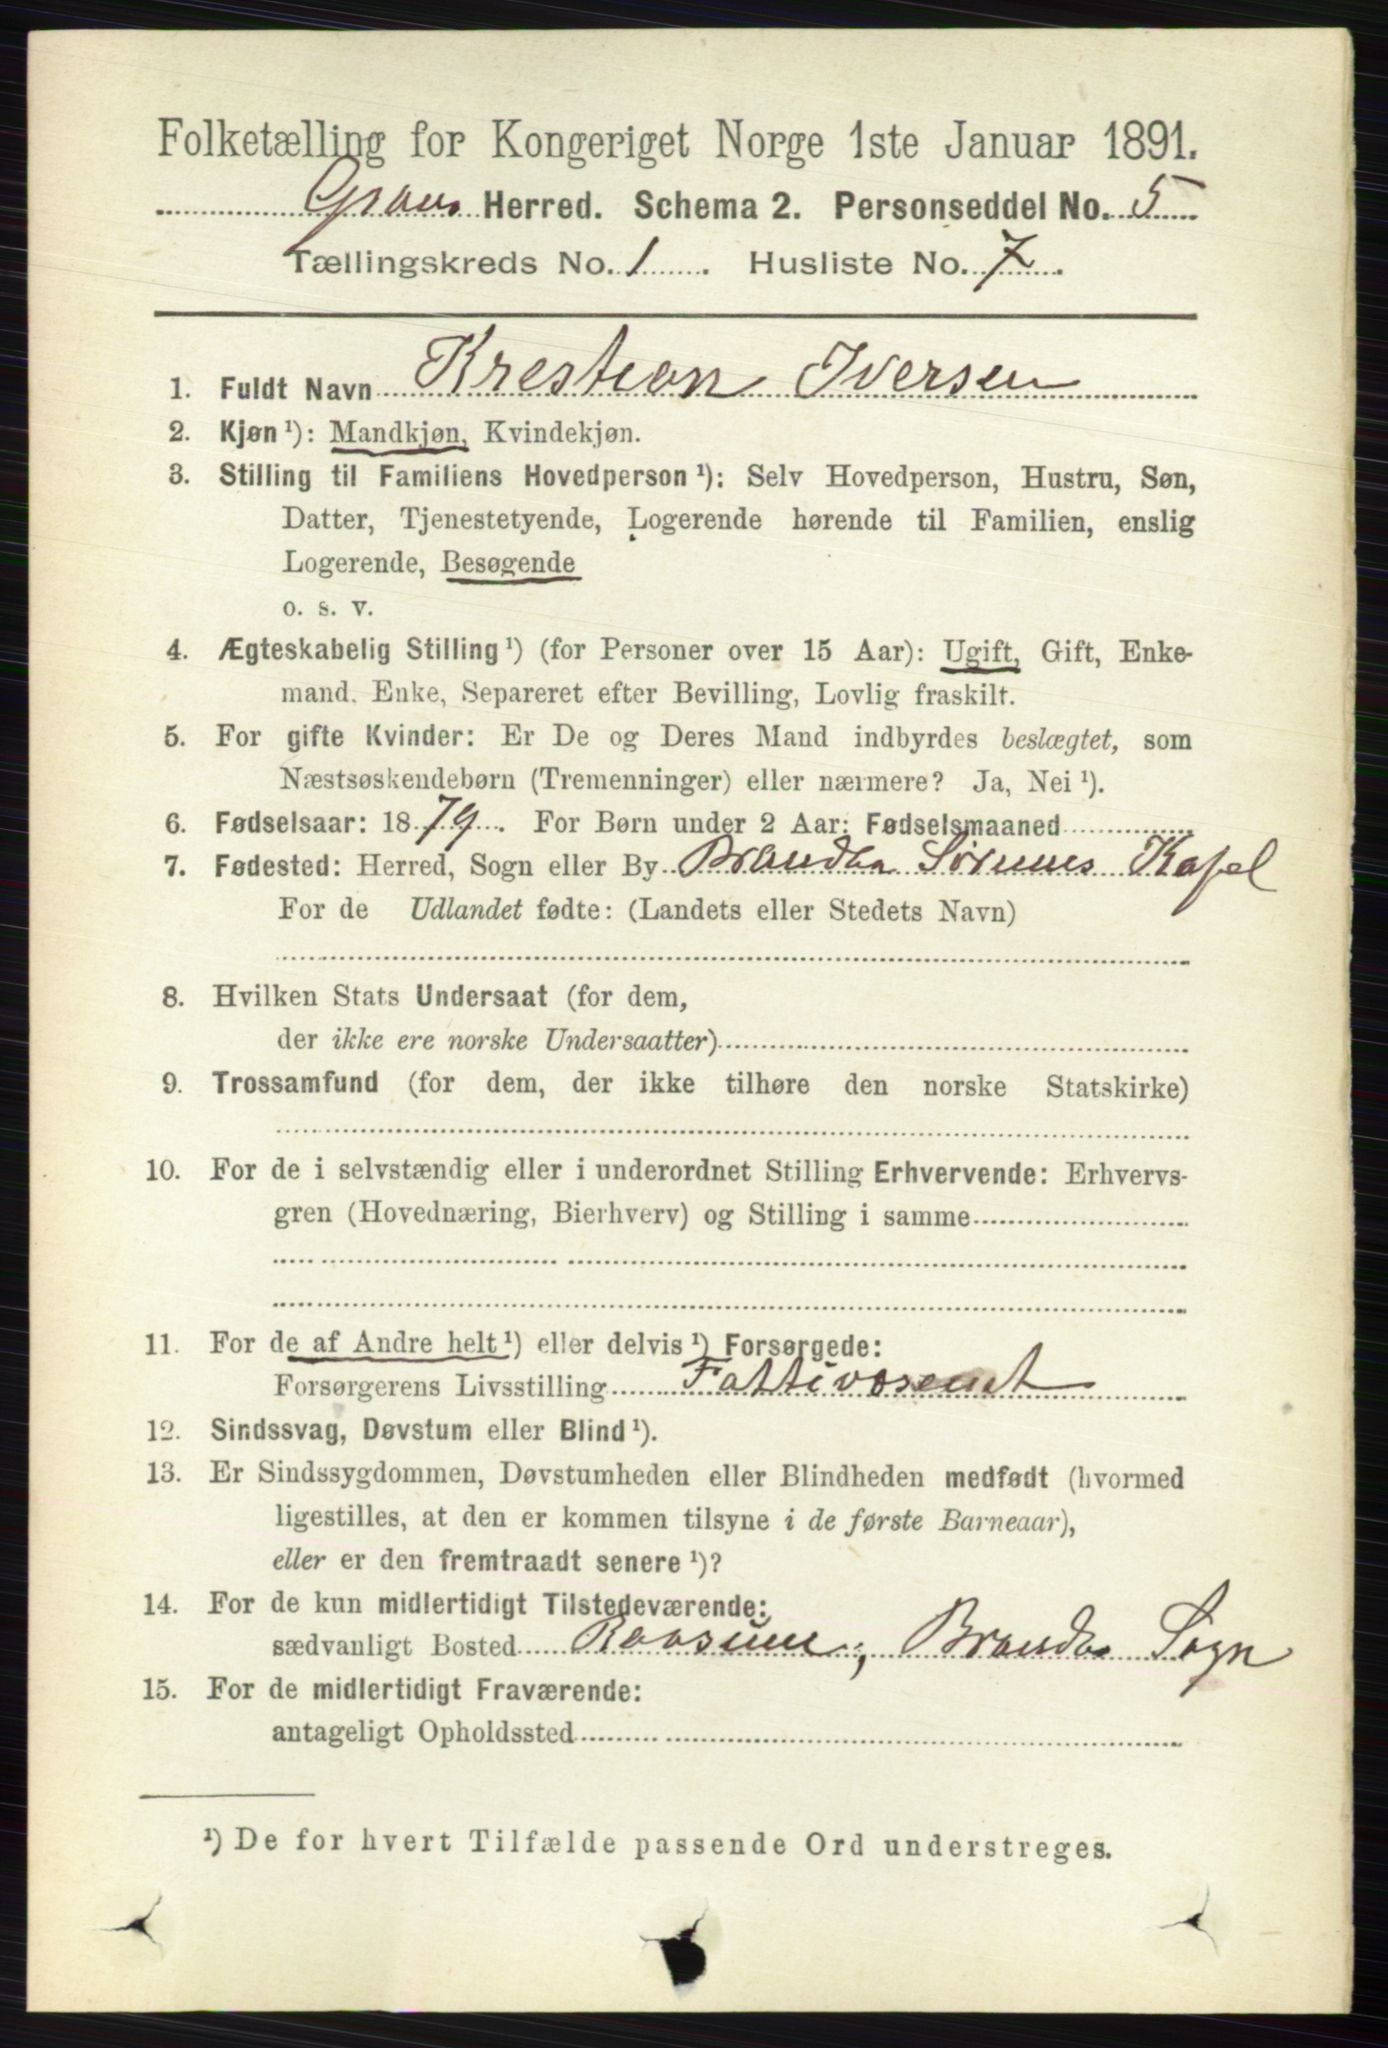 Folketælling for Kongeriget Norge 1ste Januar 1891.
Gran Herred. Schema 2. Personseddel No. 5
Tællingskreds No. 1. Husliste No. 7.
1. Fuldt Navn Krestian Iversen
2. Kjøn ¹): Mandkjøn, Kvindekjøn.
3. Stilling til Familiens Hovedperson ¹): Selv Hovedperson, Hustru, Søn,
Datter, Tjenestetyende, Logerende hørende til Familien, enslig
Logerende, Besøgende
o. s. v.
4. Ægteskabelig Stilling ¹) (for Personer over 15 Aar): Ugift, Gift, Enke-
mand. Enke, Separeret efter Bevilling, Lovlig fraskilt.
5. For gifte Kvinder: Er De og Deres Mand indbyrdes beslægtet, som
Næstsøskendebørn (Tremenninger) eller nærmere? Ja, Nei ¹).
6. Fødselsaar: 1879. For Børn under 2 Aar: Fødselsmaaned
7. Fødested: Herred, Sogn eller By Brandbu Sørums Kapel
For de Udlandet fødte: (Landets eller Stedets Navn)
8. Hvilken Stats Undersaat (for dem,
der ikke ere norske Undersaatter)
9. Trossamfund (for dem, der ikke tilhøre den norske Statskirke)
10. For de i selvstændig eller i underordnet Stilling Erhvervende: Erhvervs-
gren (Hovednæring, Bierhverv) og Stilling i samme
11. For de af Andre helt ¹) eller delvis ¹) Forsørgede:
Forsørgerens Livsstilling Fattivæsenet
12. Sindssvag, Døvstum eller Blind ¹).
13. Er Sindssygdommen, Døvstumheden eller Blindheden medfødt (hvormed
ligestilles, at den er kommen tilsyne i de første Barneaar),
eller er den fremtraadt senere ¹)?
14. For de kun midlertidigt Tilstedeværende:
sædvanligt Bosted Brandbu Sogn
15. For de midlertidigt Fraværende:
antageligt Opholdssted
¹) De for hvert Tilfælde passende Ord understreges.